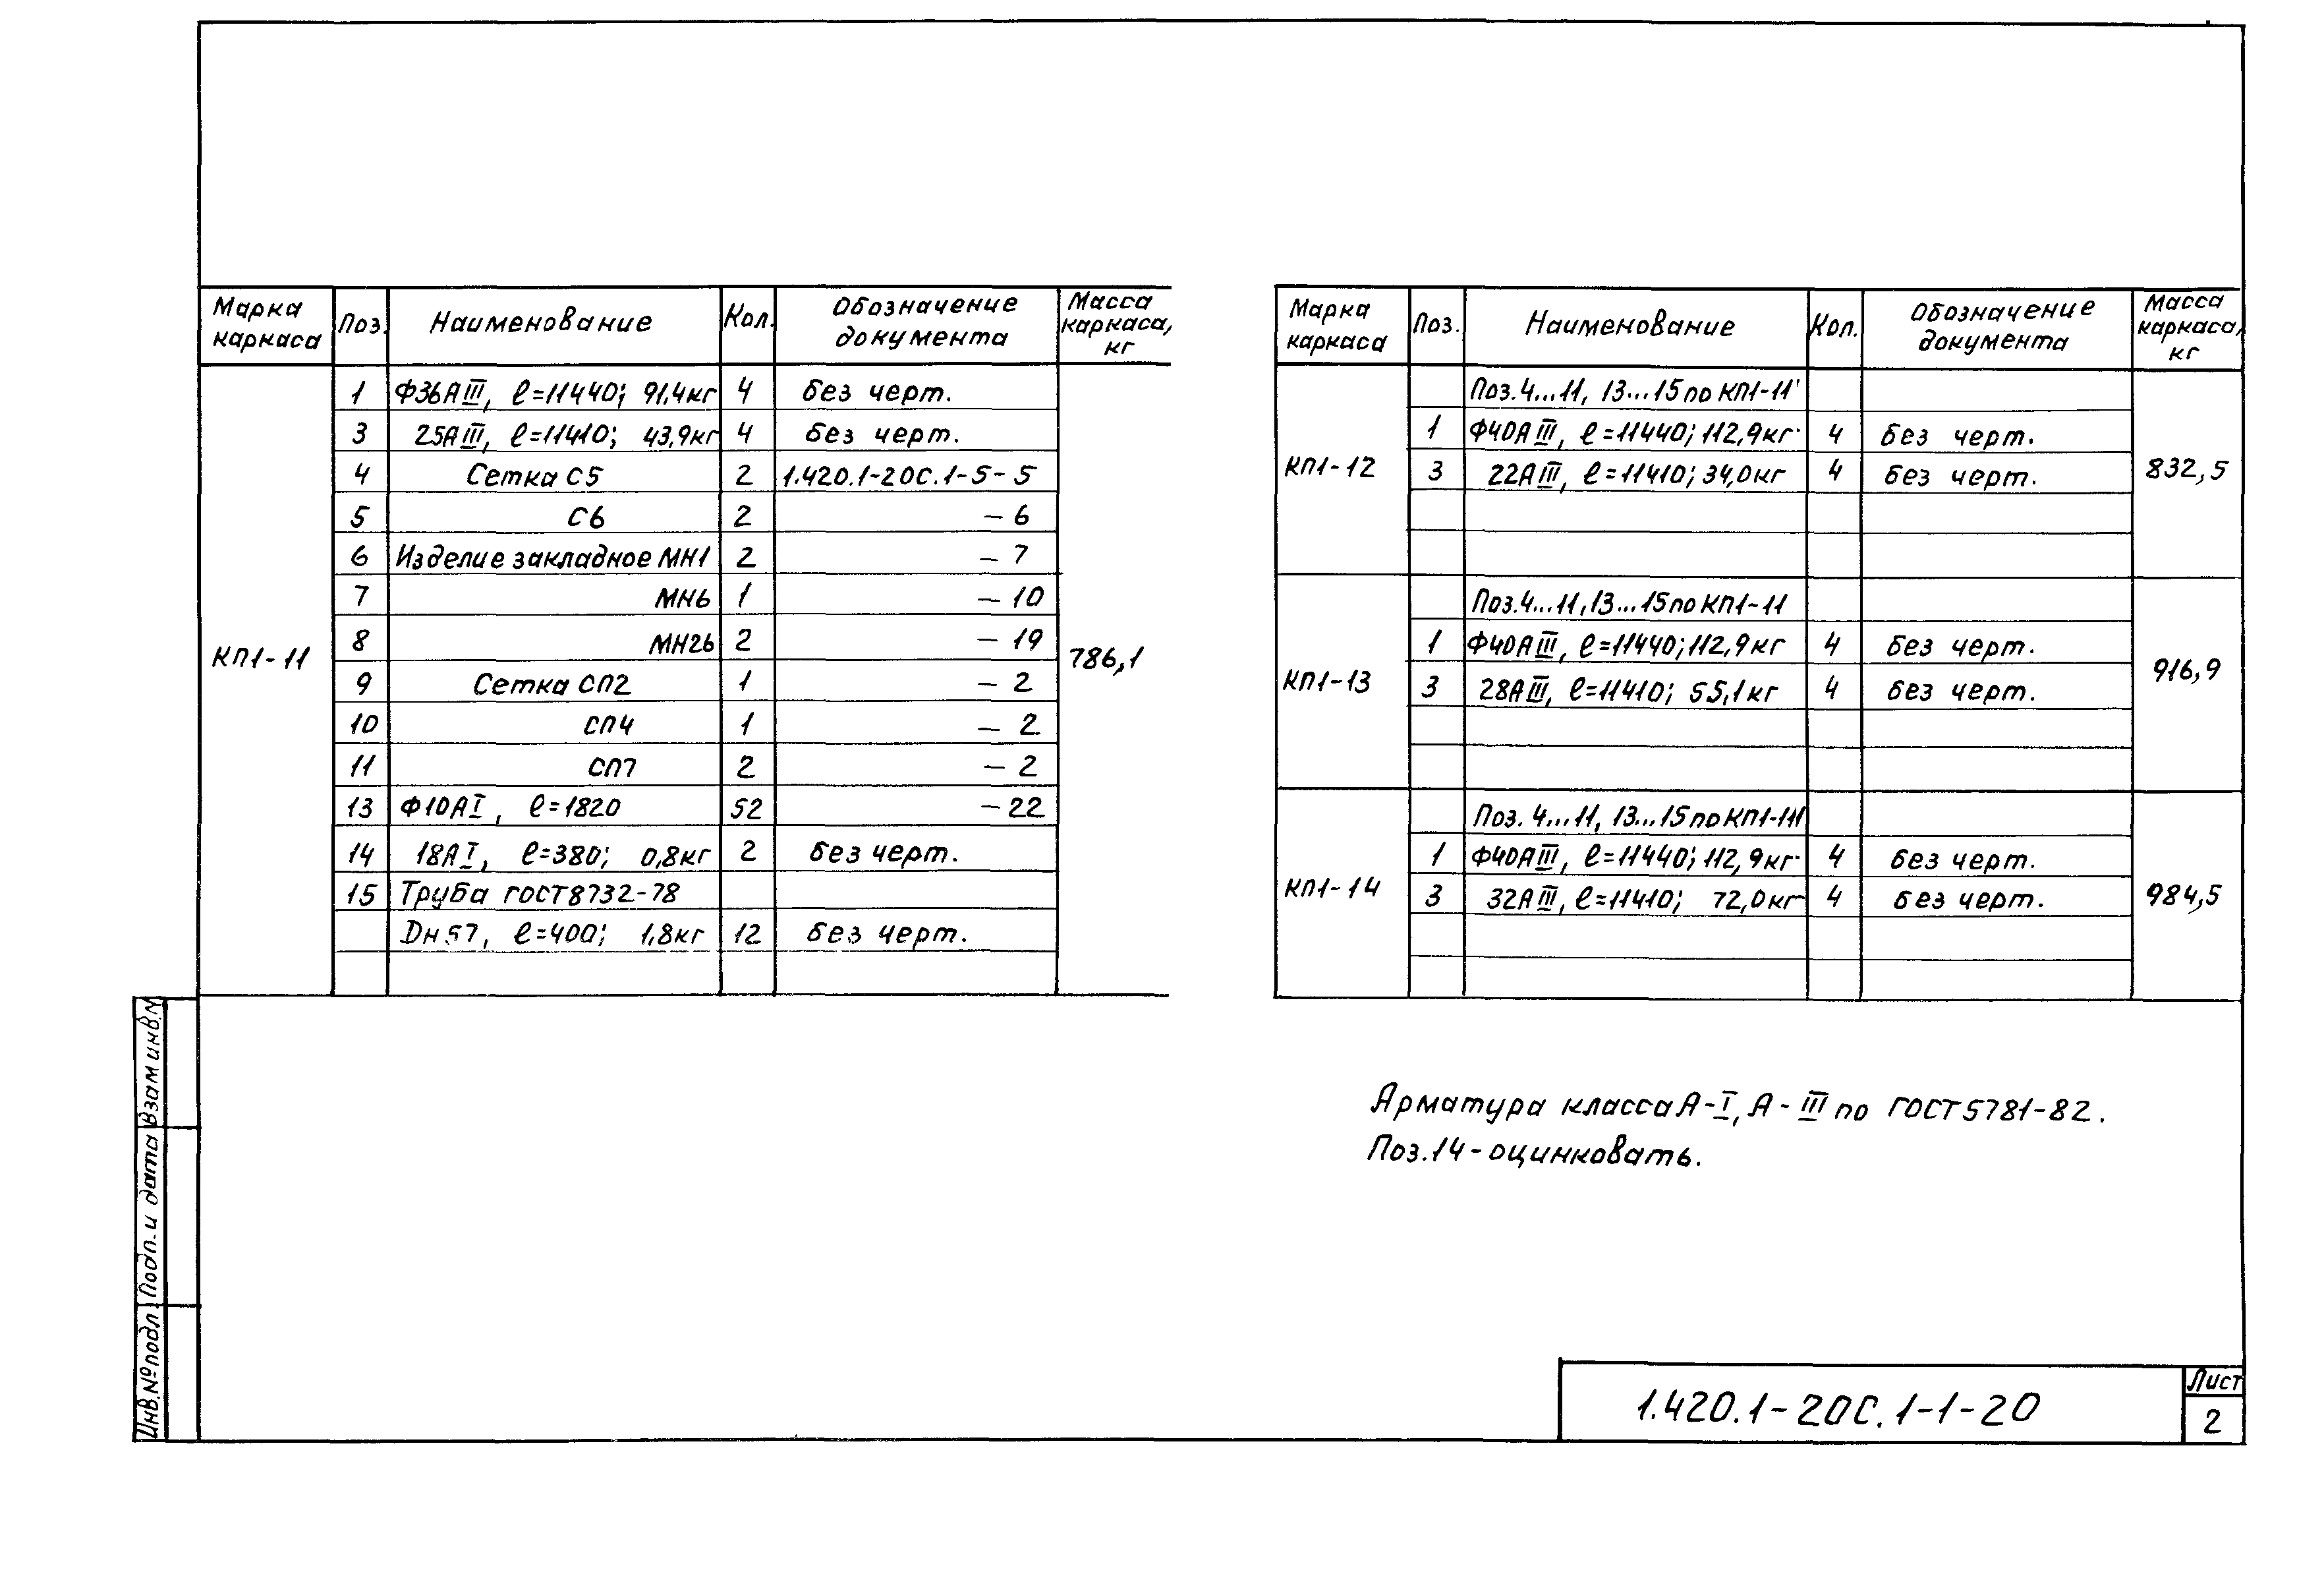 Марка каркаса | Поз. | Наименование | Кол. | Обозначение документа | Масса каркаса, кг
КП1-11 | 1 | Ф36АIII, ℓ=11440; 91,4кг | 4 | без черт. | 786,1
3 | 25АIII, ℓ=11410; 43,9кг | 4 | без черт.
4 | Сетка С5 | 2 | 1.420.1-20С.1-5-5
5 | С6 | 2 | -6
6 | Изделие закладное МН1 | 2 | -7
7 | МН6 | 1 | -10
8 | МН26 | 2 | -19
9 | Сетка СП2 | 1 | -2
10 | СП4 | 1 | -2
11 | СП7 | 2 | -2
13 | Ф10АI, ℓ=1820 | 52 | -22
14 | 18АI, ℓ=380; 0,8кг | 2 | без черт.
15 | Труба ГОСТ8732-78
Дн57, ℓ=400; 1,8кг | 12 | без черт.
Марка каркаса | Поз. | Наименование | Кол. | Обозначение документа | Масса каркаса, кг
КП1-12 | Поз.4...11, 13...15 по КП1-11 | 832,5
1 | Ф40АIII, ℓ=11440; 112,9кг | 4 | без черт.
3 | 22АIII, ℓ=11410; 34,0кг | 4 | без черт.
КП1-13 | Поз.4...11, 13...15 по КП1-11 | 916,9
1 | Ф40АIII, ℓ=11440; 112,9кг | 4 | без черт.
3 | 28АIII, ℓ=11410; 55,1кг | 4 | без черт.
КП1-14 | Поз. 4...11, 13...15 по КП1-11 | 984,5
1 | Ф40АIII, ℓ=11440; 112,9кг | 4 | без черт.
3 | 32АIII, ℓ=11410; 72,0кг | 4 | без черт.
Арматура класса А-I, А-III по ГОСТ 5781-82.
Поз.14-оцинковать.
Взам инв.N
Подп. и дата
Инв.№подл
1.420.1-20С.1-1-20
Лист
2